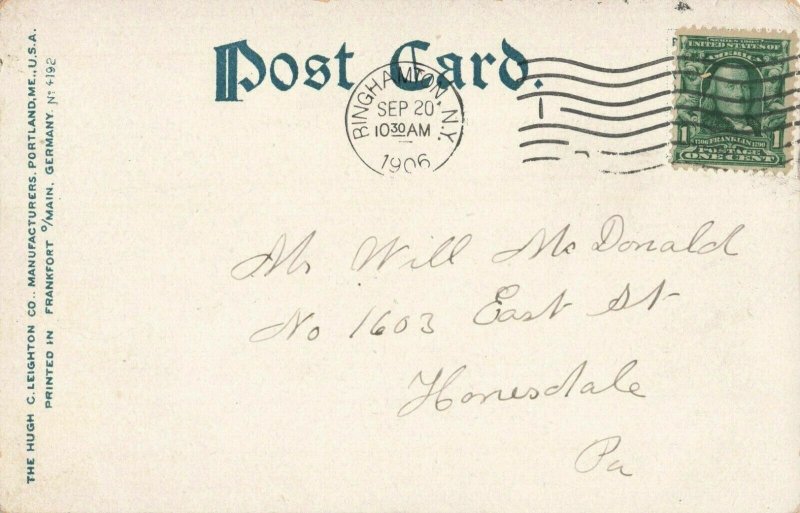 Post Card.
BINGHAMTON, N.Y.
SEP 20
10 30 AM
1906
UNITED STATES OF
AMERICA
1 1
FRANKLIN
POSTAGE
ONE CENT
Mr Will McDonald
No 1603 East St
Honesdale
Pa
THE HUGH C. LEIGHTON CO., MANUFACTURERS, PORTLAND, ME., U.S.A.
PRINTED IN FRANKFORT O/MAIN, GERMANY. No 4192